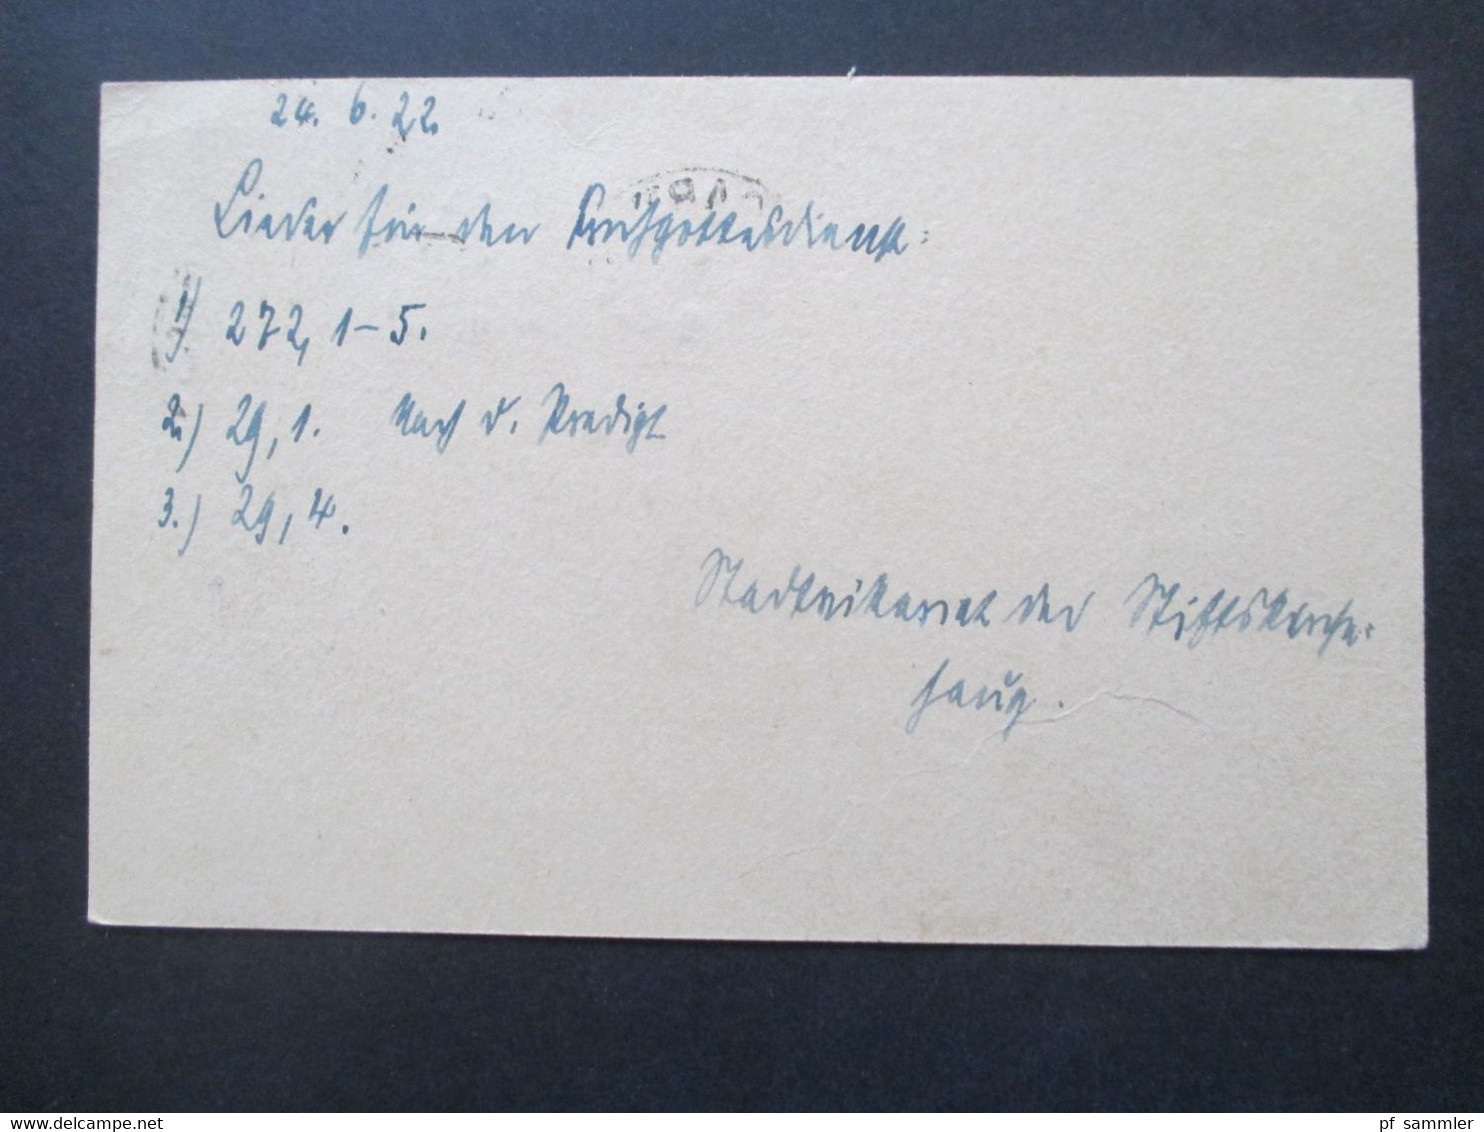 24. 6. 22.
Lieder für den Frühgottesdienst:
1.) 272, 1-5.
2.) 29, 1. Nach d. Predigt
3.) 29, 4.
Stadtvikariat der Stiftskirche:
Haug.
pf_sammler